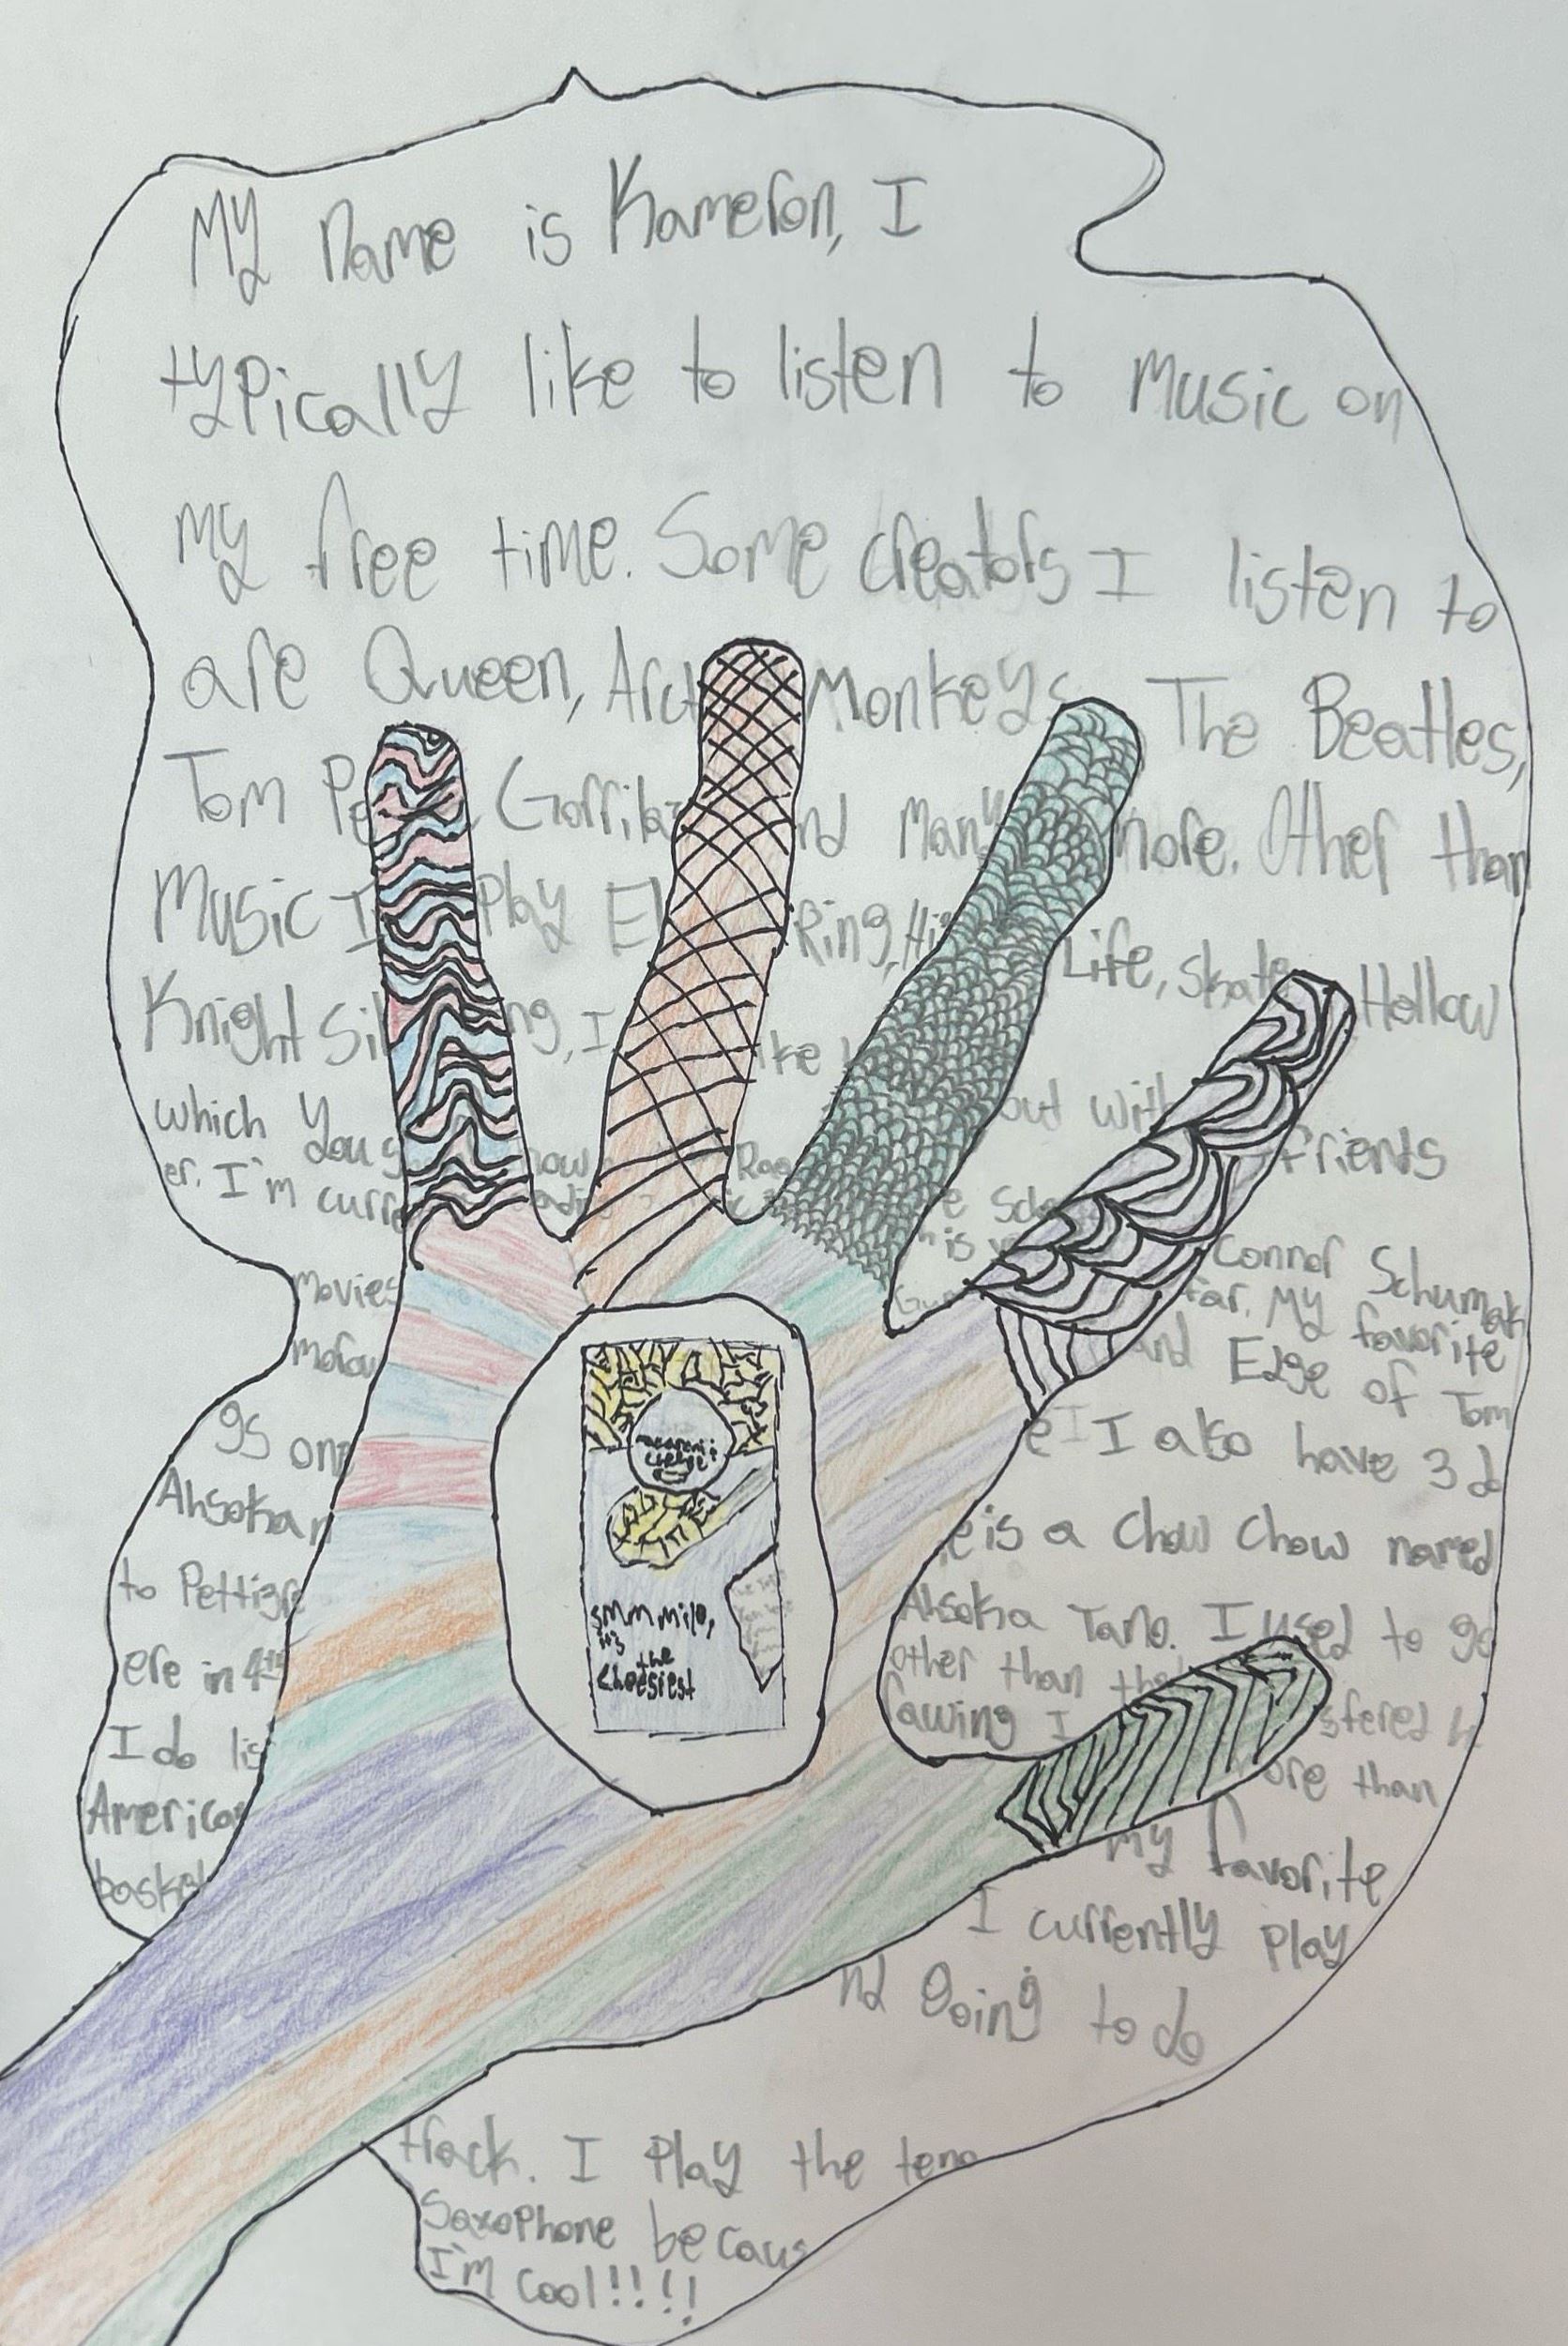 My name is Kameron, I
typically like to listen to music on
my free time. Some creators I listen to
are Queen, Arct Monkeys The Beatles,
Tom Pe Gorrila nd Many more. Other than
Music I Play El Ring, Life, skate Hollow
Knight Sil ng, I ike out with friends
which you
er. I'm curr
movies Connor Schumak
far. My favorite
and Edge of Tom
gs one I also have 3 do
Ahsoka is a Chow Chow named
Ahsoka Tano. I used to go
to Pettigre other than tha
ere in 4th awing I stered h
I do lis ore than
America my favorite
basket I currently play
nd going to do
track. I Play the teno
Saxophone becaus
I'm cool!!!!
macaroni &
cheese
smmmile,
it's
the
cheesiest